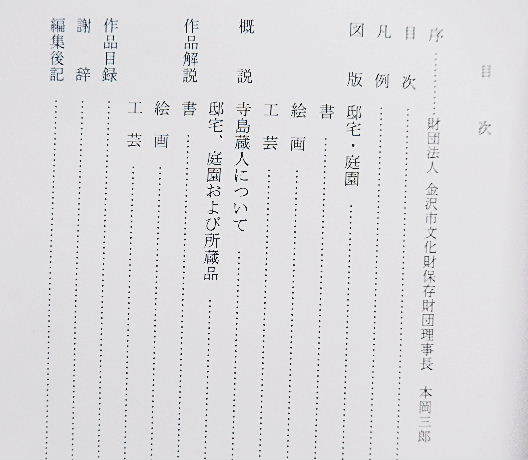 目次
序…………財団法人 金沢市文化財保存財団理事長 本岡三郎
目次
凡例
図版 邸宅・庭園
書
絵画
工芸
概説 寺島蔵人について
邸宅、庭園および所蔵品
作品解説 書
絵画
工芸
作品目録
謝辞
編集後記